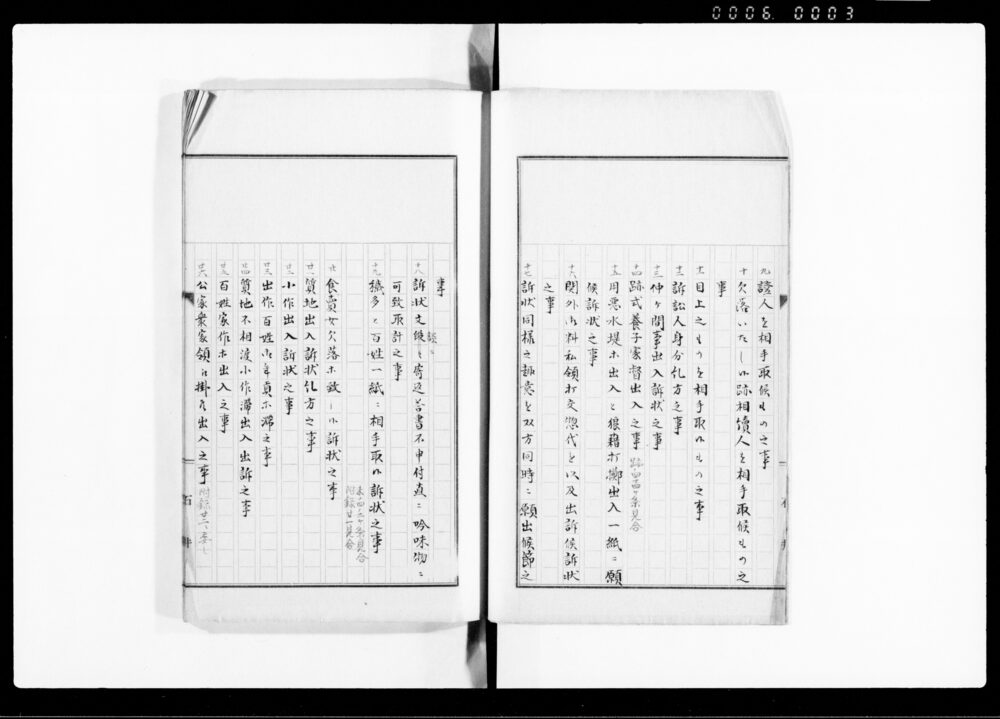 0006. 0003
九 證人を相手取候ものゝ事
十 欠落いたし候跡相續人を相手取候ものゝ之
事
十一 目上之ものを相手取候ものゝ之事
十二 訴訟人身分糺方之事
十三 仲ヶ間事出入訴状之事
十四 跡式養子家督出入之事
十五 用悪水堤ホ出入と狼藉打擲出入一紙ニ願
候訴状之事
十六 関外御料私領打交惣代を以及出訴候訴状
之事
十七 訴状同様之趣意を双方同時ニ願出候節之
事
十八 訴状文段ニ寄返答書不申付直ニ吟味物ニ
可致取計之事
十九 穢多と百姓一紙ニ相手取候訴状之事
廿 食賣女欠落ホ致し候訴状之事
末四三ヶ条見合
附録廿一見合
廿一 質地出入訴状糺方之事
廿二 小作出入訴状之事
廿三 出作百姓御年貢ホ滞之事
廿四 質地不相渡小作滞出入出訴之事
廿五 百姓家作ホ出入之事
廿六 公家衆家領ニ掛候出入之事
石井